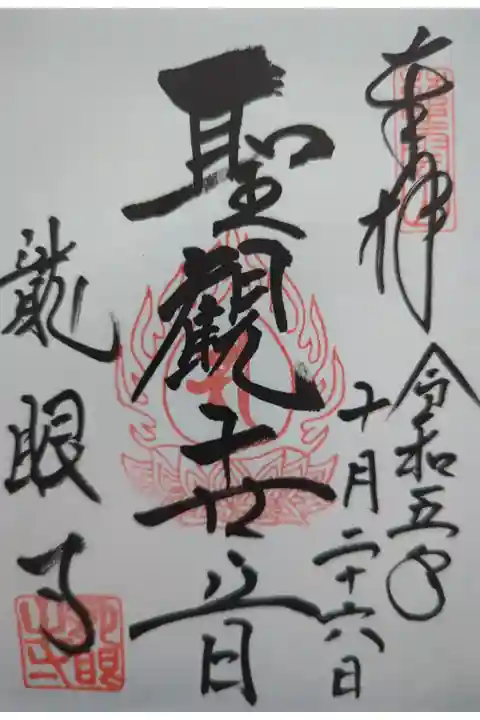 奉拝
令和五年
十月二十六日
聖觀世音
龍眼寺